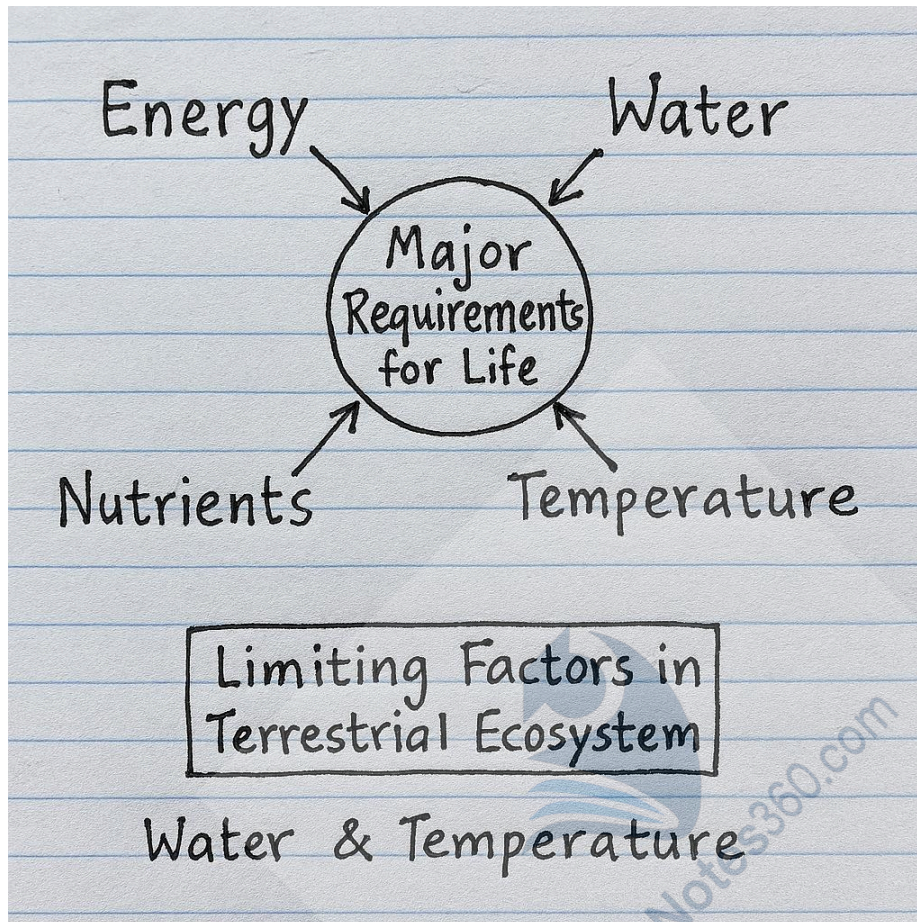 Energy
Water
Major
Requirements
for Life
Nutrients
Temperature
Limiting Factors in
Terrestrial Ecosystem
Water & Temperature
Notes360.com